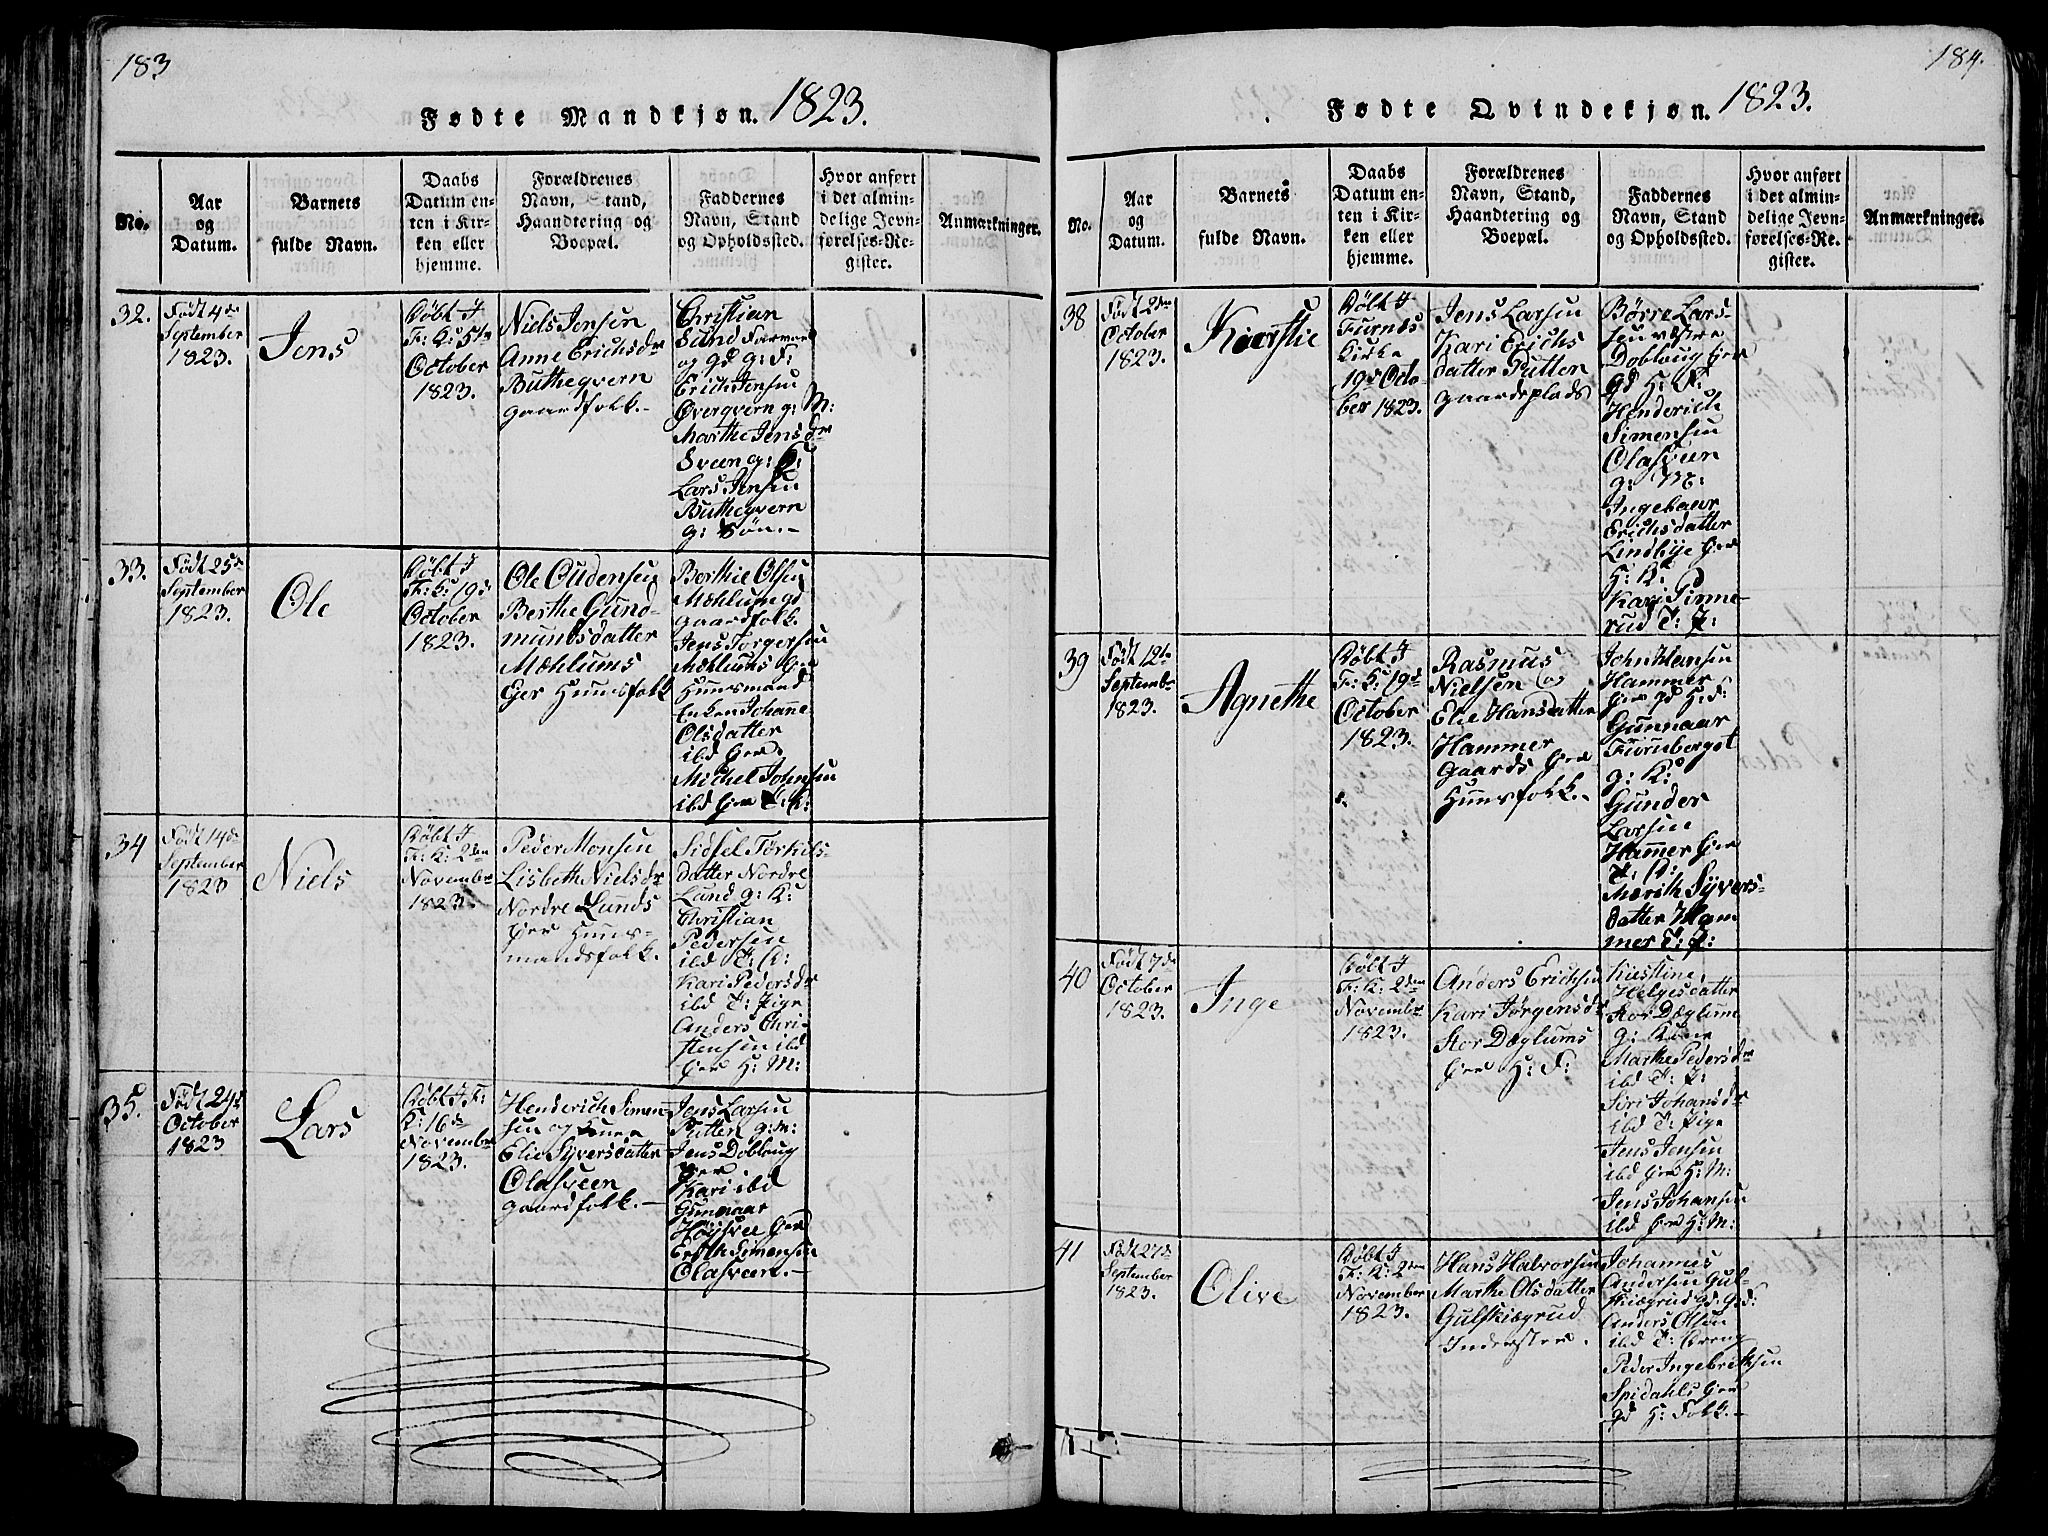 183
Fødte Mandkjøn. 1823.
No.
Aar
og
Datum.
Barnets
fulde Navn.
Daabs
Datum en-
ten i Kir-
ken eller
hjemme.
Forældrenes
Navn, Stand,
Haandtering og
Boepæl.
Faddernes
Navn, Stand
og Opholdssted.
Hvor anført
i det almin-
delige Jevn-
førelses-Re-
gister.
Anmærkninger.
32.
Født 4de
September
1823.
Jens
Døbt I
F: K: 5te
October
1823.
Niels Jensen
Anne Erichsdr
Butheqvern
gaardfolk.-
Christian
Sund
og gd g: F:
Erich Jensen
Overqvern g: M:
Marthe Jensdr
Sveen g:
Lars Jensen
Butheqvern
g: Søn.-
33.
Født 25de
September
1823.
Ole
Døbt I
F: K: 19de
October
1823.
Ole Gudensen
Berthe Gund-
mundsdatter
Mæhlums
Eger Huusfolk
Berthie Olsen
Mæhlum gd
gaardfolk.
Jens Torgersen
Mæhlums Eier
Huusmand
Enken Johanne
Olsdatter
ibd Eier.
Michel Johnsen
ibd Eier T: K:
34
Født 14de
September
1823
Niels
Døbt I
F: K: 2den
Novembr
1823.
Peder Monsen
Lisbeth Nielsdr
Nordre Lunds
Eier Huus-
mandsfolk.
Sidsel Torkils-
datter Nordre
Lund g: K:
Christian
Pedersen
ibd T: K:
Kari Pedersdr
ibd T: Pige
Anders Chri-
stensen ibd
Eier H: M:
35.
Født 24de
October
1823
Lars
Døbt I F:
K: 16de
Novembr
1823.
Henderich Simen-
sen og
Elie Syversdatter
Olasveen
gaardfolk.-
Jens Larsen
Putten g: M:
Jens Doblaug
Eier
Kari ibd
Gunnaar
Høgsvee Eier
Erich Simensen
Olasveen.-
184.
Fødte Qvindekjøn. 1823.
No.
Aar
og
Datum.
Barnets
fulde Navn.
Daabs
Datum en-
ten i Kir-
ken eller
hjemme.
Forældrenes
Navn, Stand,
Haandtering og
Boepæl.
Faddernes
Navn, Stand
og Opholdssted.
Hvor anført
i det almin-
delige Jevn-
førelses-Re-
gister.
Anmærkninger.
38
Født 2den
October
1823.
Kiærstie
Døbt I
Furnds
Kirke
19de Octo-
ber 1823.
Jens Larsen
Kari Erichs
datter Putten
gaardsplads
Børre Lars-
sen vestre
Doblaug Eier
gd H: F:
Henderich
Simensen
Olasveen
g: M:
Ingebaar
Erichsdatter
Lindbye Eier
H: K:
Kari Pinne-
rud T: P:
39
Født 12te
Septembr
1823.
Agnethe
Døbt I
F: K: 19de
October
1823.
Rasmus
Nielsen og
Elie Hansdatter
Hammer
Gaards Eier
Huusfolk.-
John Hansen
Hammer
Eier gd H: F:
Gunnaar
Furuberget
g: K:
Gunder
Larsen
Hammer Eier
T: K:
Marith Syvers-
datter Ham
mer T: P:
40
Født 7de
October
1823.
Inge
Døbt I
F: K: 2den
Novembr
1823.
Anders Erichsen
Kari Jørgensdr
Stor Dæglums
Eier H: F:
Kiestine
Helgesdatter
Stor Dæglum
g: Kone
Marthe Pedersdr
ibd T: P:
Siri Johansdr
ibd T: Pige
Jens Jensen
ibd Eier H: M:
Jens Johansen
ibd Eier H: M:
41
Født 27de
September
1823.
Olive
Døbt I
F: K: 2den
November
1823.
Hans Halvorsen
Marthe Olsdatter
Gulskiægrud
Inderster.
Johannes
Andersen Gul-
skiægrud gd. G: F:
Anders Olsøn
ibd T: Dreng
Peder Ingebrithsen
Spidahls Eier
gd H: Folk.-